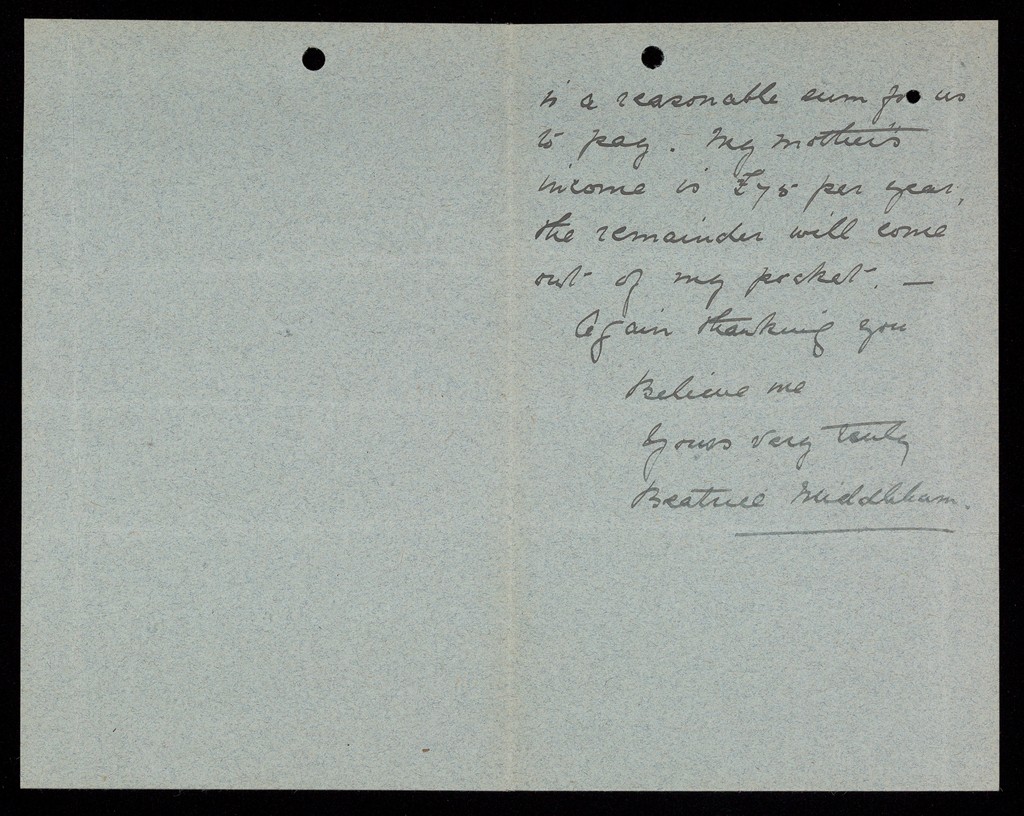 is a reasonable sum for us
to pay. My mother's
income is £75 per year,
the remainder will come
out of my pocket. —
Again thanking you
Believe me
Yours very truly
Beatrice Middleham.